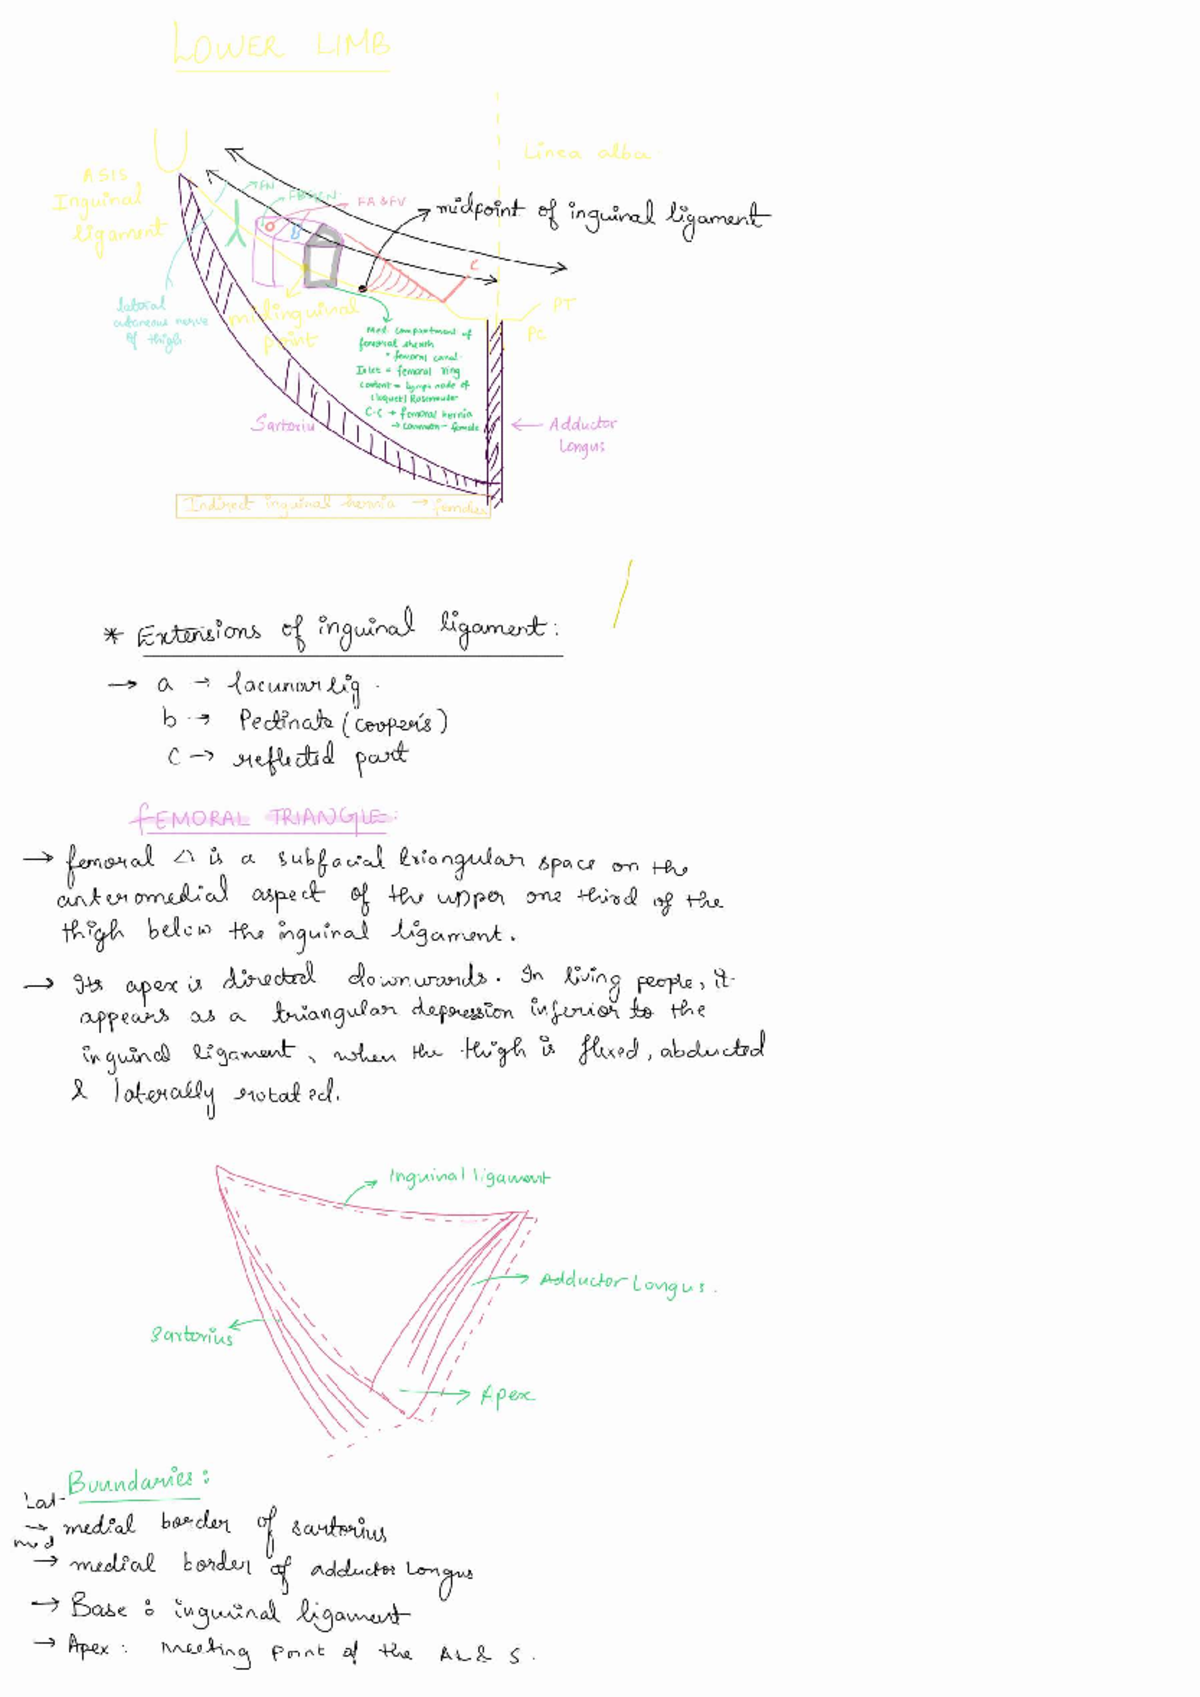 LOWER LIMB
Linea alba
ASIS
Inguinal
ligament
FN
FA & FV
midpoint of inguinal ligament
C
PT
PC
lateral
cutaneous nerve
of thigh
midinguinal
point
Med. compartment of
femoral sheath
* femoral canal
Inlet = femoral ring
content = lymph node of
C.C → femoral hernia
→ common - female
Sartoriu
← Adductor
Longus
Indirect inguinal hernia → females
* Extensions of inguinal ligament:
→ a → lacunar lig.
b → Pectinate (cooper's)
C → reflected part
fEMORAL TRIANGLE:
→ femoral △ is a subfacial triangular space on the
anteromedial aspect of the upper one third of the
thigh below the inguinal ligament.
→ Its apex is directed downwards. In living people, it
appears as a triangular depression inferior to the
inguinal ligament, when the thigh is flexed, abducted
& laterally rotated.
Inguinal ligament
Adductor Longus.
Sartorius
Apex
Boundaries:
Lat-
→ medial border of sartorius
med
→ medial border of adductor Longus
→ Base: inguinal ligament
→ Apex: Meeting Point of the AL & S.